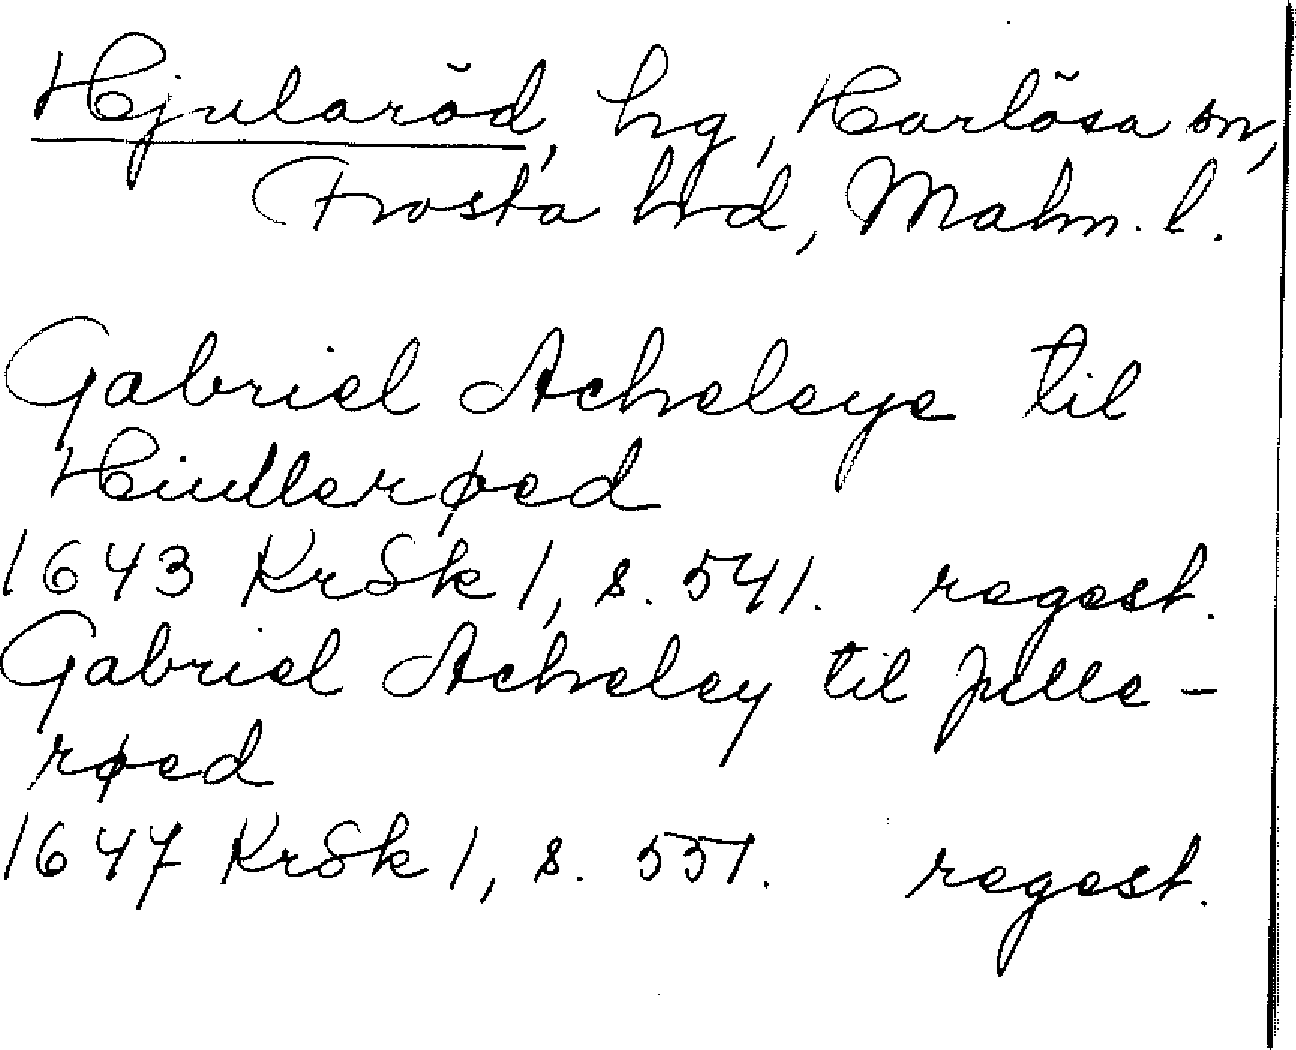 Hjularöd, hg, Harlösa sn,
Frosta hd, Malm. l.
Gabriel Acheleye til
Hiullerøed
1643 KrSk 1, s. 541. regest.
Gabriel Acheley til Julle-
røed
1647 KrSk 1, s. 551. regest.